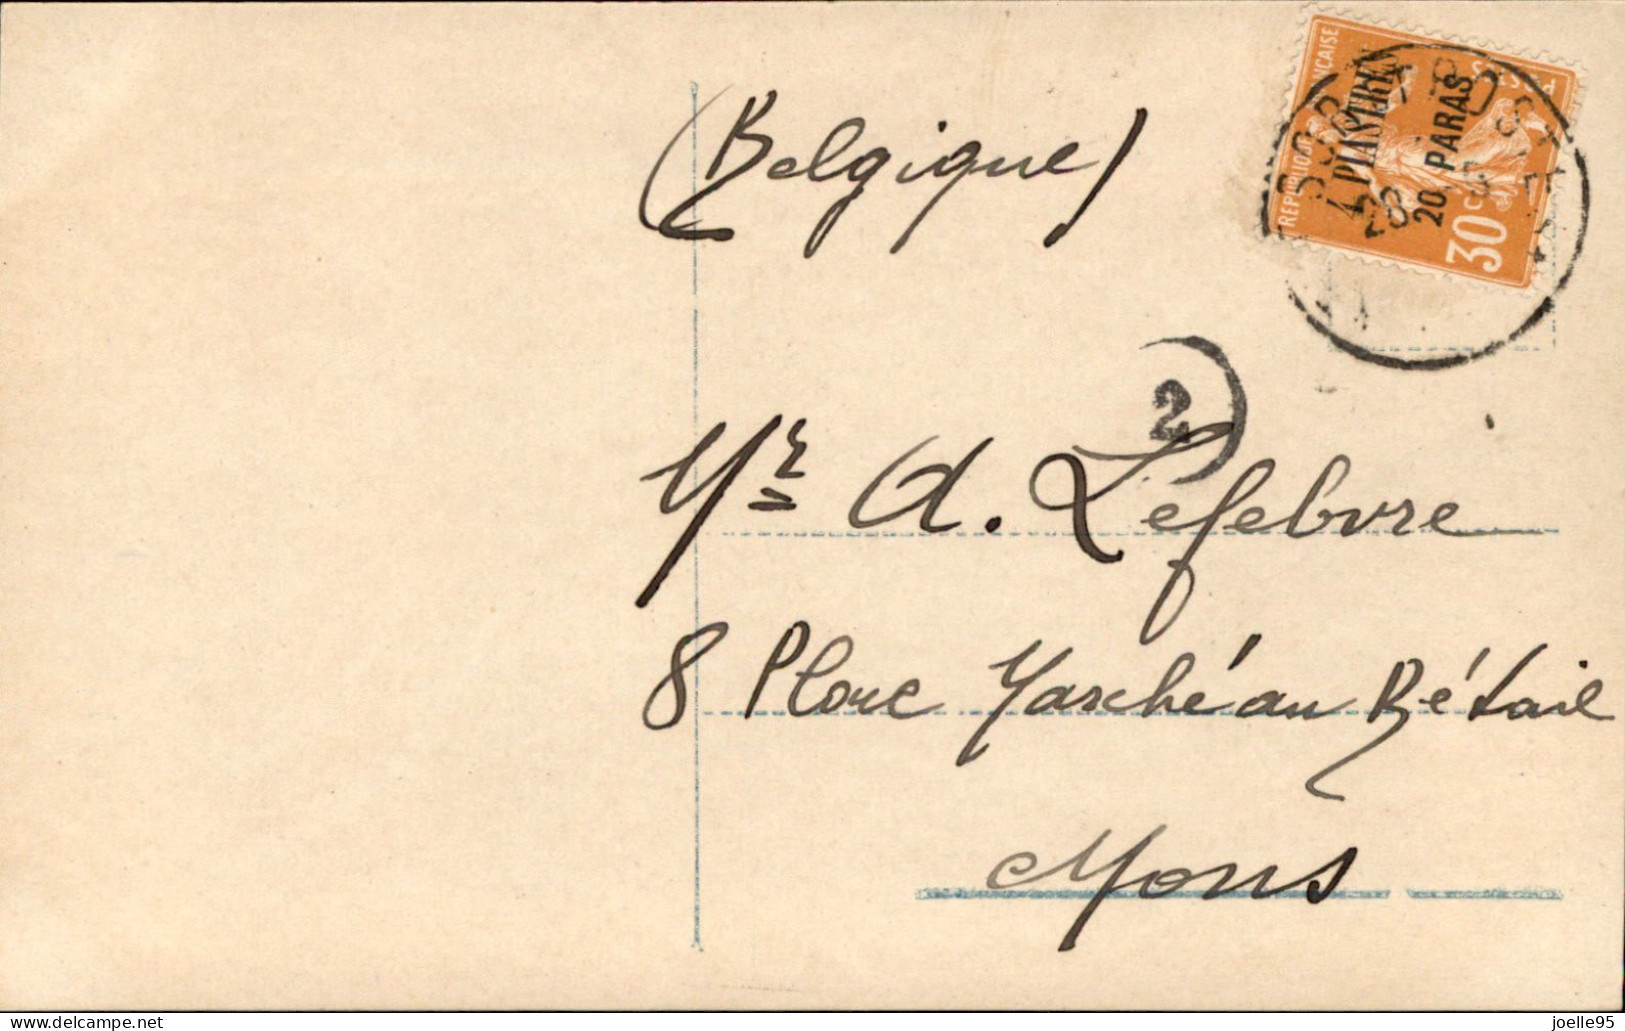 (Belgique)
RÉPUBLIQUE FRANÇAISE
4 PIASTRES
20 PARAS
30 C.
2
Mr A. Lefebvre
8 Place Marché au Bétail
Mons
delcampe.net
joelle95